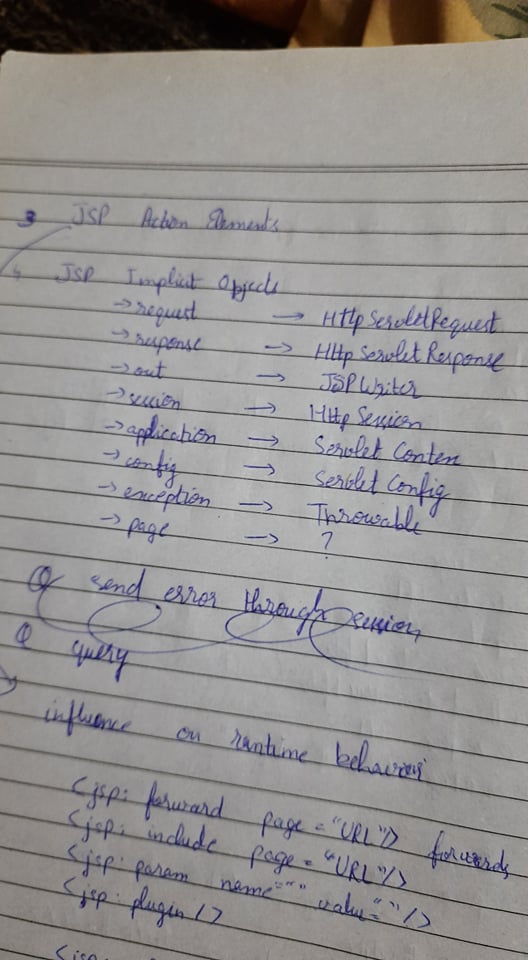 3 JSP Action Elements
JSP Implicit Objects
→ request → HttpServletRequest
→ response → HttpServletResponse
→ out → JSPWriter
→ session → HttpSession
→ application → Servlet Contex
→ config → Servlet Config
→ exception → Throwable
→ page → ?
Q send error through session
Q query
influence on runtime behaviour
<jsp: forward page = "URL"/> forwards
<jsp: include page = "URL"/>
<jsp: param name="" value=""/>
<jsp: plugin />
<jsp: